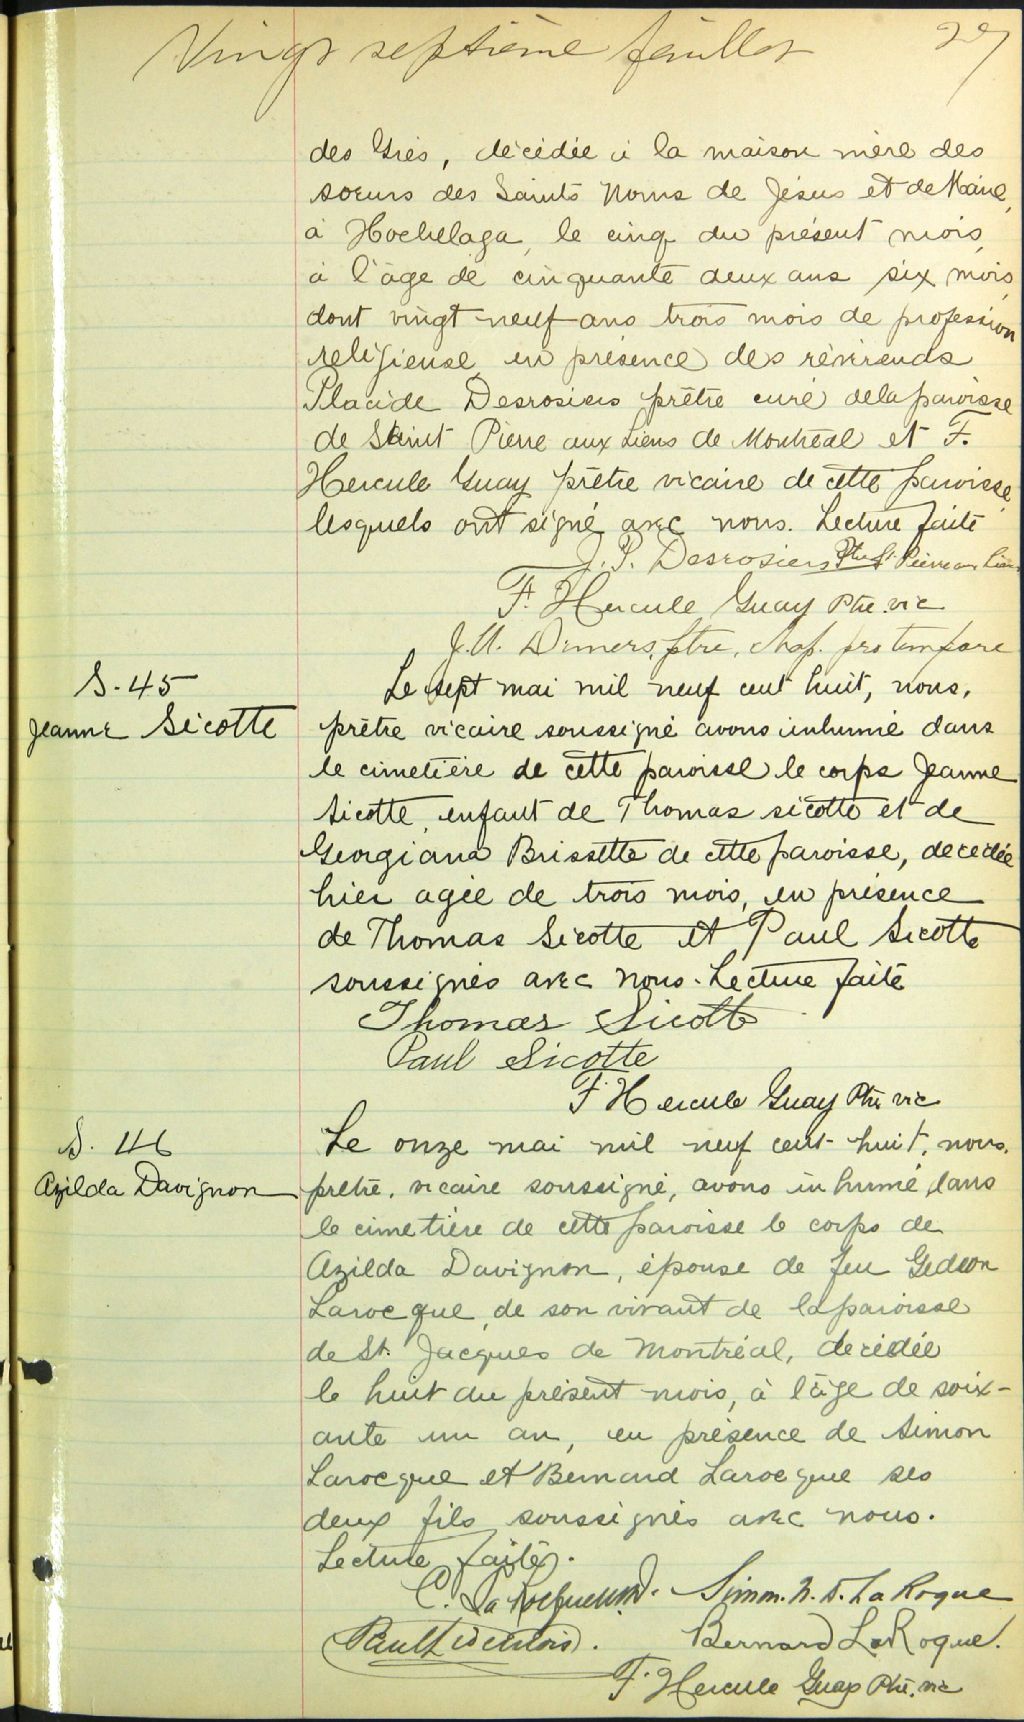 Vingt septième feuillet 27
des Grès, décédée à la maison mère des
soeurs des Saints Noms de Jésus et de Marie,
à Hochelaga, le cinq du présent mois,
à l'âge de cinquante deux ans six mois,
dont vingt-neuf ans trois mois de profession
religieuse, en présence des révérends
Placide Desrosiers prêtre curé de la paroisse
de Saint Pierre aux Liens de Montréal et F.
Hercule Guay prêtre vicaire de cette paroisse,
lesquels ont signé avec nous. Lecture faite
J. P. Desrosiers Ptre St. Pierre aux Liens
F. Hercule Guay Ptre. vic
J. U. Demers, ptre, chap. pro tempore
S. 45
Jeanne Sicotte
Le sept mai mil neuf cent huit, nous,
prêtre vicaire soussigné avons inhumé dans
le cimetière de cette paroisse le corps Jeanne
Sicotte, enfant de Thomas Sicotte et de
Georgiana Brissette de cette paroisse, décédée
hier agée de trois mois, en présence
de Thomas Sicotte et Paul Sicotte
soussignés avec nous. Lecture faite
Thomas Sicotte
Paul Sicotte
F Hercule Guay Ptre vic
S. 46
Azilda Davignon
Le onze mai mil neuf cent huit, nous,
prêtre, vicaire soussigné, avons inhumé, dans
le cimetière de cette paroisse le corps de
Azilda Davignon, épouse de feu Gedeon
Larocque, de son vivant de la paroisse
de St. Jacques de Montréal, décédée
le huit du présent mois, à l'âge de soix-
ante un an, en présence de Simon
Larocque et Bernard Larocque ses
deux fils soussignés avec nous.
Lecture faite.
C. LaRocque Simon. N. D. LaRoque
Bernard LaRoque.
F. Hercule Guay Ptre. vic